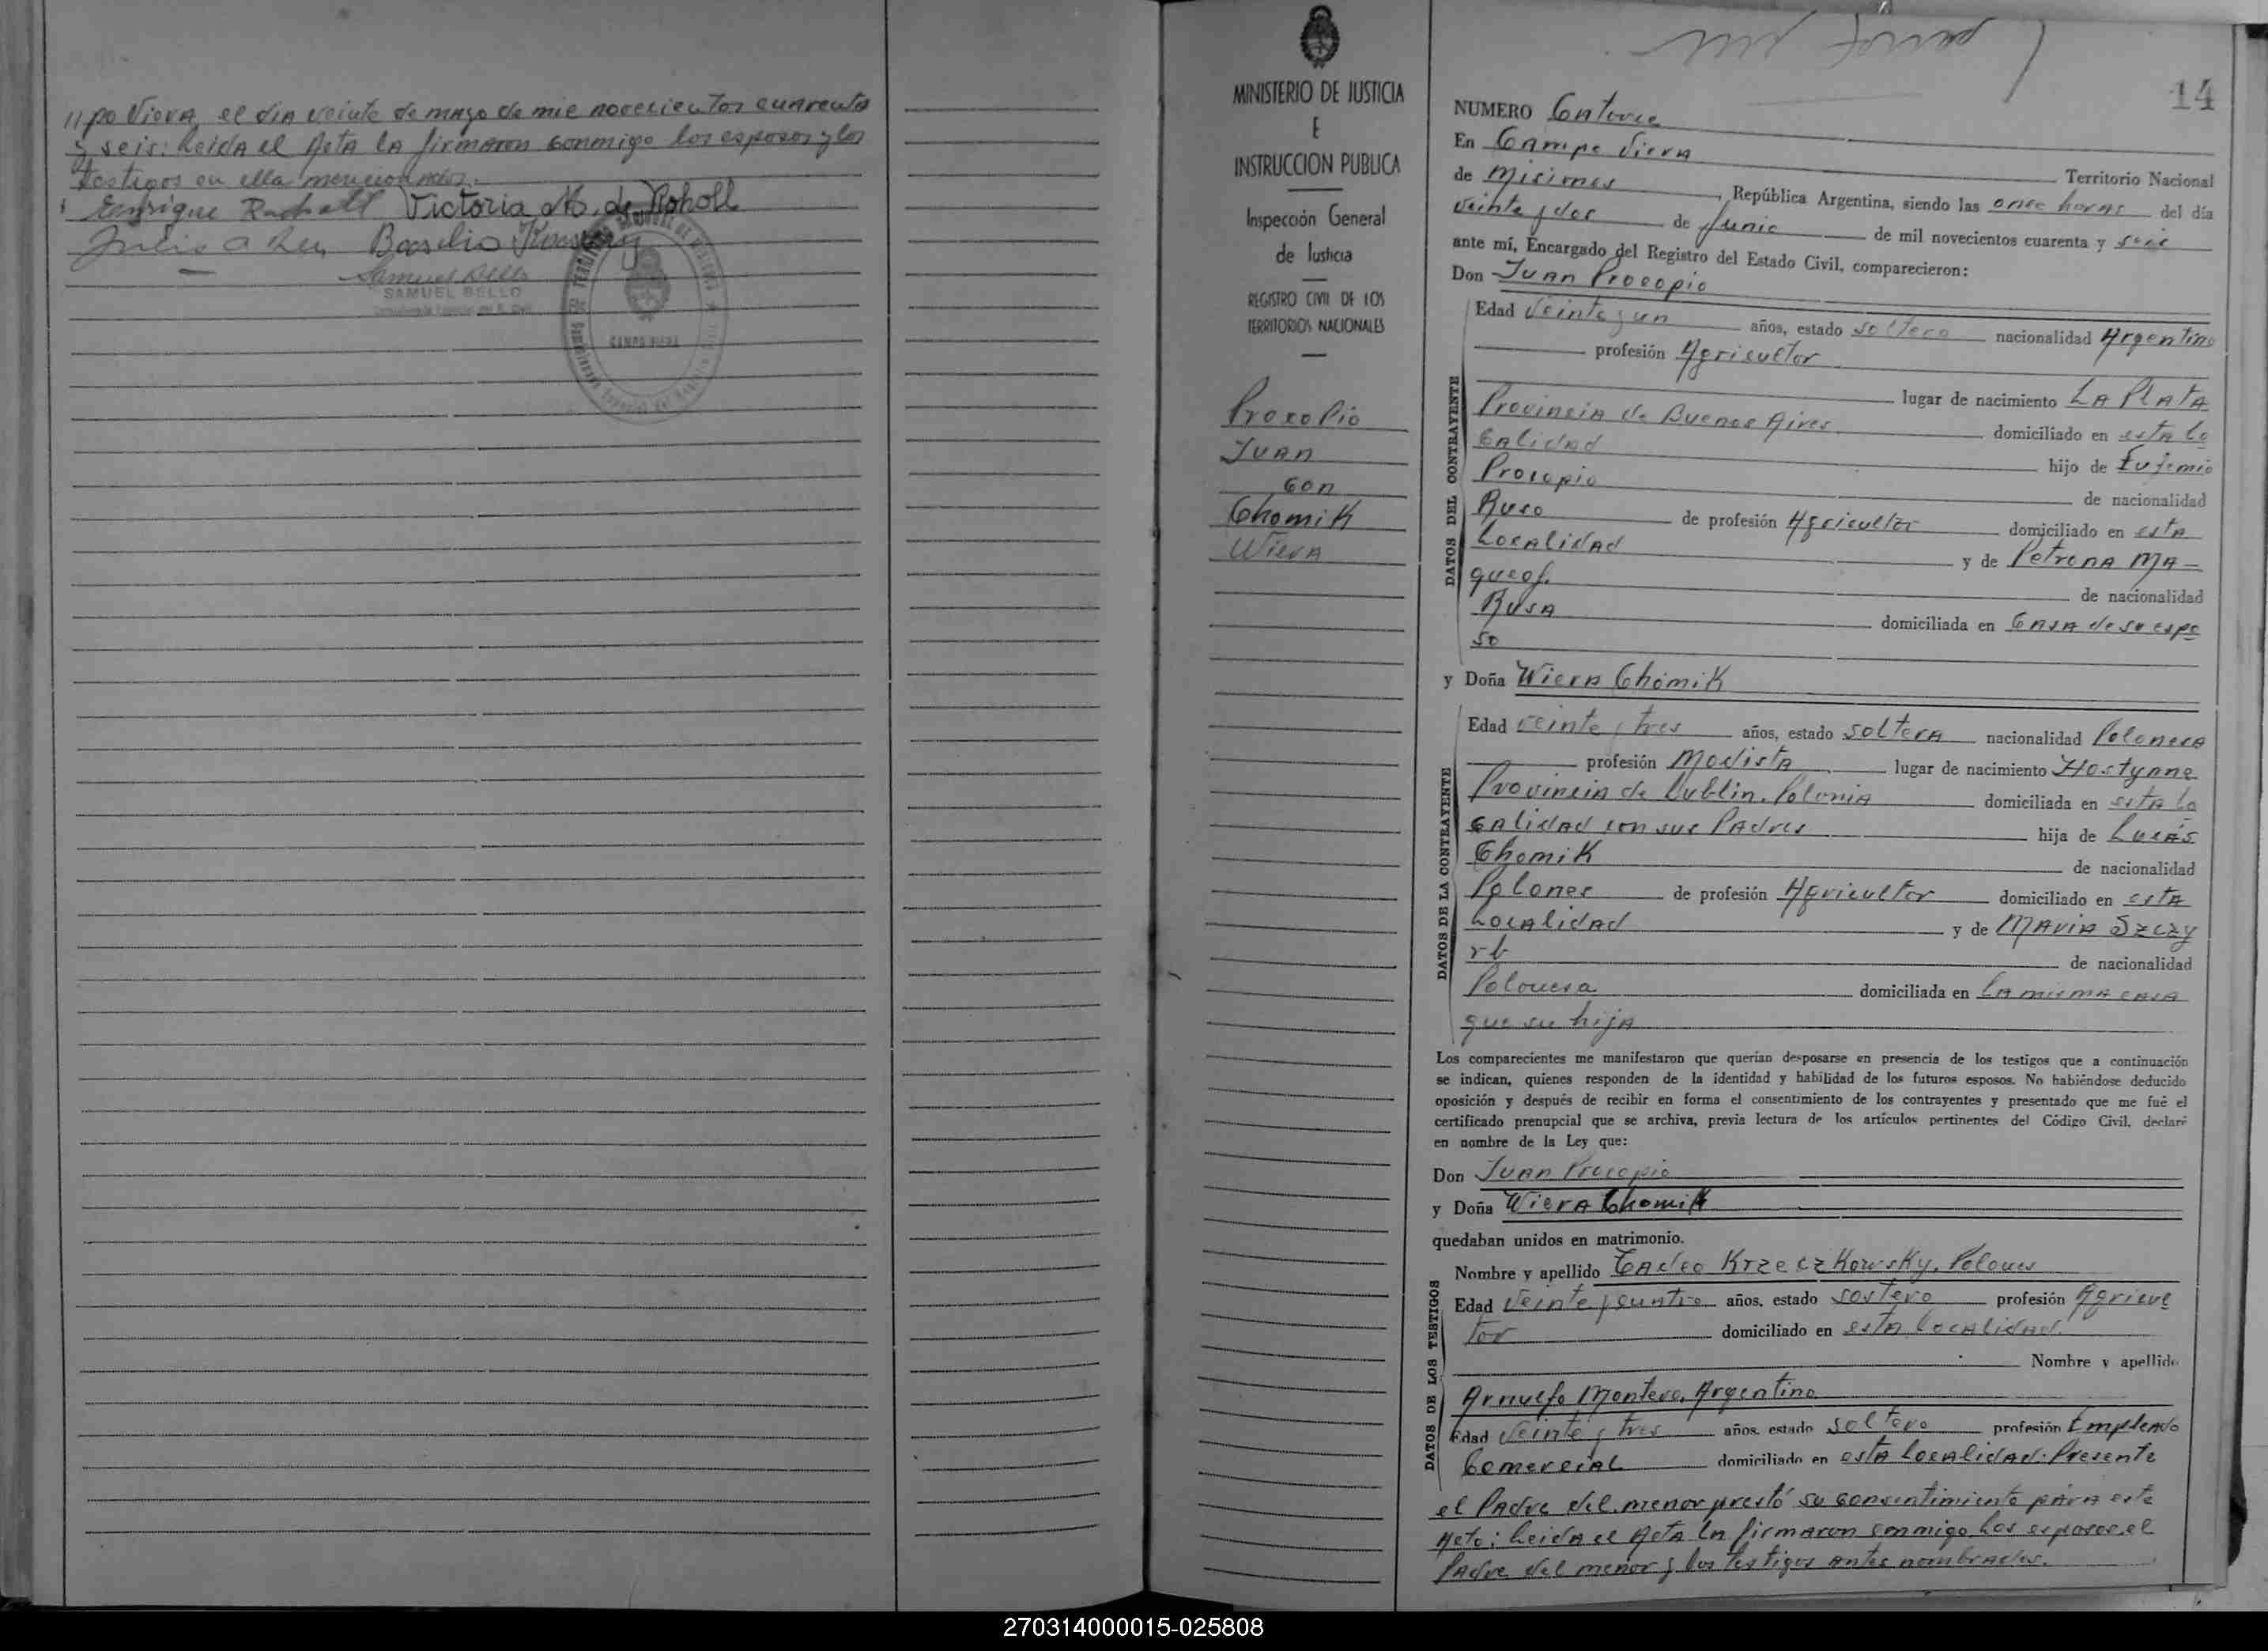 //po Viera el dia veinte de mayo de mil novecientos cuarenta
y seis: Leida el Acta la firmaron conmigo los esposos y los
testigos en ella mencionados.
Enrique Rohall Victoria M. de Roholl
Julio A Basilio
Samuel Bello
SAMUEL BELLO
CAMPO VIERA
MINISTERIO DE JUSTICIA
E
INSTRUCCION PUBLICA
Inspección General
de Justicia
REGISTRO CIVIL DE LOS
TERRITORIOS NACIONALES
Procopio
Juan
con
Chomik
Wiera
14
NUMERO Catorce
En Campo Viera
Territorio Nacional
de Misiones, República Argentina, siendo las once horas del día
veinte y dos de Junio de mil novecientos cuarenta y seis
ante mí, Encargado del Registro del Estado Civil, comparecieron:
Don Juan Procopio
DATOS DEL CONTRAYENTE
Edad Veinte y un años, estado soltero nacionalidad Argentino
profesión Agricultor
lugar de nacimiento La Plata
Provincia de Buenos Aires domiciliado en esta lo
calidad hijo de Eufemio
Procopio de nacionalidad
Ruso de profesión Agricultor domiciliado en esta
Localidad y de Petrona Ma-
queof. de nacionalidad
Rusa domiciliada en Casa de su espo
so
y Doña Wiera Chomik
DATOS DE LA CONTRAYENTE
Edad veinte y tres años, estado soltera nacionalidad Polonesa
profesión Modista lugar de nacimiento Hostynne
Provincia de Lublin. Polonia domiciliada en esta lo
calidad con sus Padres hija de Lucás
Chomik de nacionalidad
Polones de profesión Agricultor domiciliado en esta
Localidad y de Maria Szczy
rb de nacionalidad
Polonesa domiciliada en la misma casa
que su hija
Los comparecientes me manifestaron que querían desposarse en presencia de los testigos que a continuación
se indican, quienes responden de la identidad y habilidad de los futuros esposos. No habiéndose deducido
oposición y después de recibir en forma el consentimiento de los contrayentes y presentado que me fué el
certificado prenupcial que se archiva, previa lectura de los artículos pertinentes del Código Civil, declaré
en nombre de la Ley que:
Don Juan Procopio
y Doña Wiera Chomik
quedaban unidos en matrimonio.
DATOS DE LOS TESTIGOS
Nombre y apellido Tadeo Krzeczkowsky. Polones
Edad Veinte y cuatro años, estado soltero profesión Agricul
tor domiciliado en esta localidad.
Nombre y apellido
Arnulfo Montero. Argentino
Edad Veinte y tres años, estado soltero profesión Empleado
Comercial domiciliado en esta Localidad: Presente
el Padre del menor prestó su consentimiento para este
Acto: Leida el Acta la firmaron conmigo los esposos, el
Padre del menor y los testigos antes nombrados.
270314000015-025808